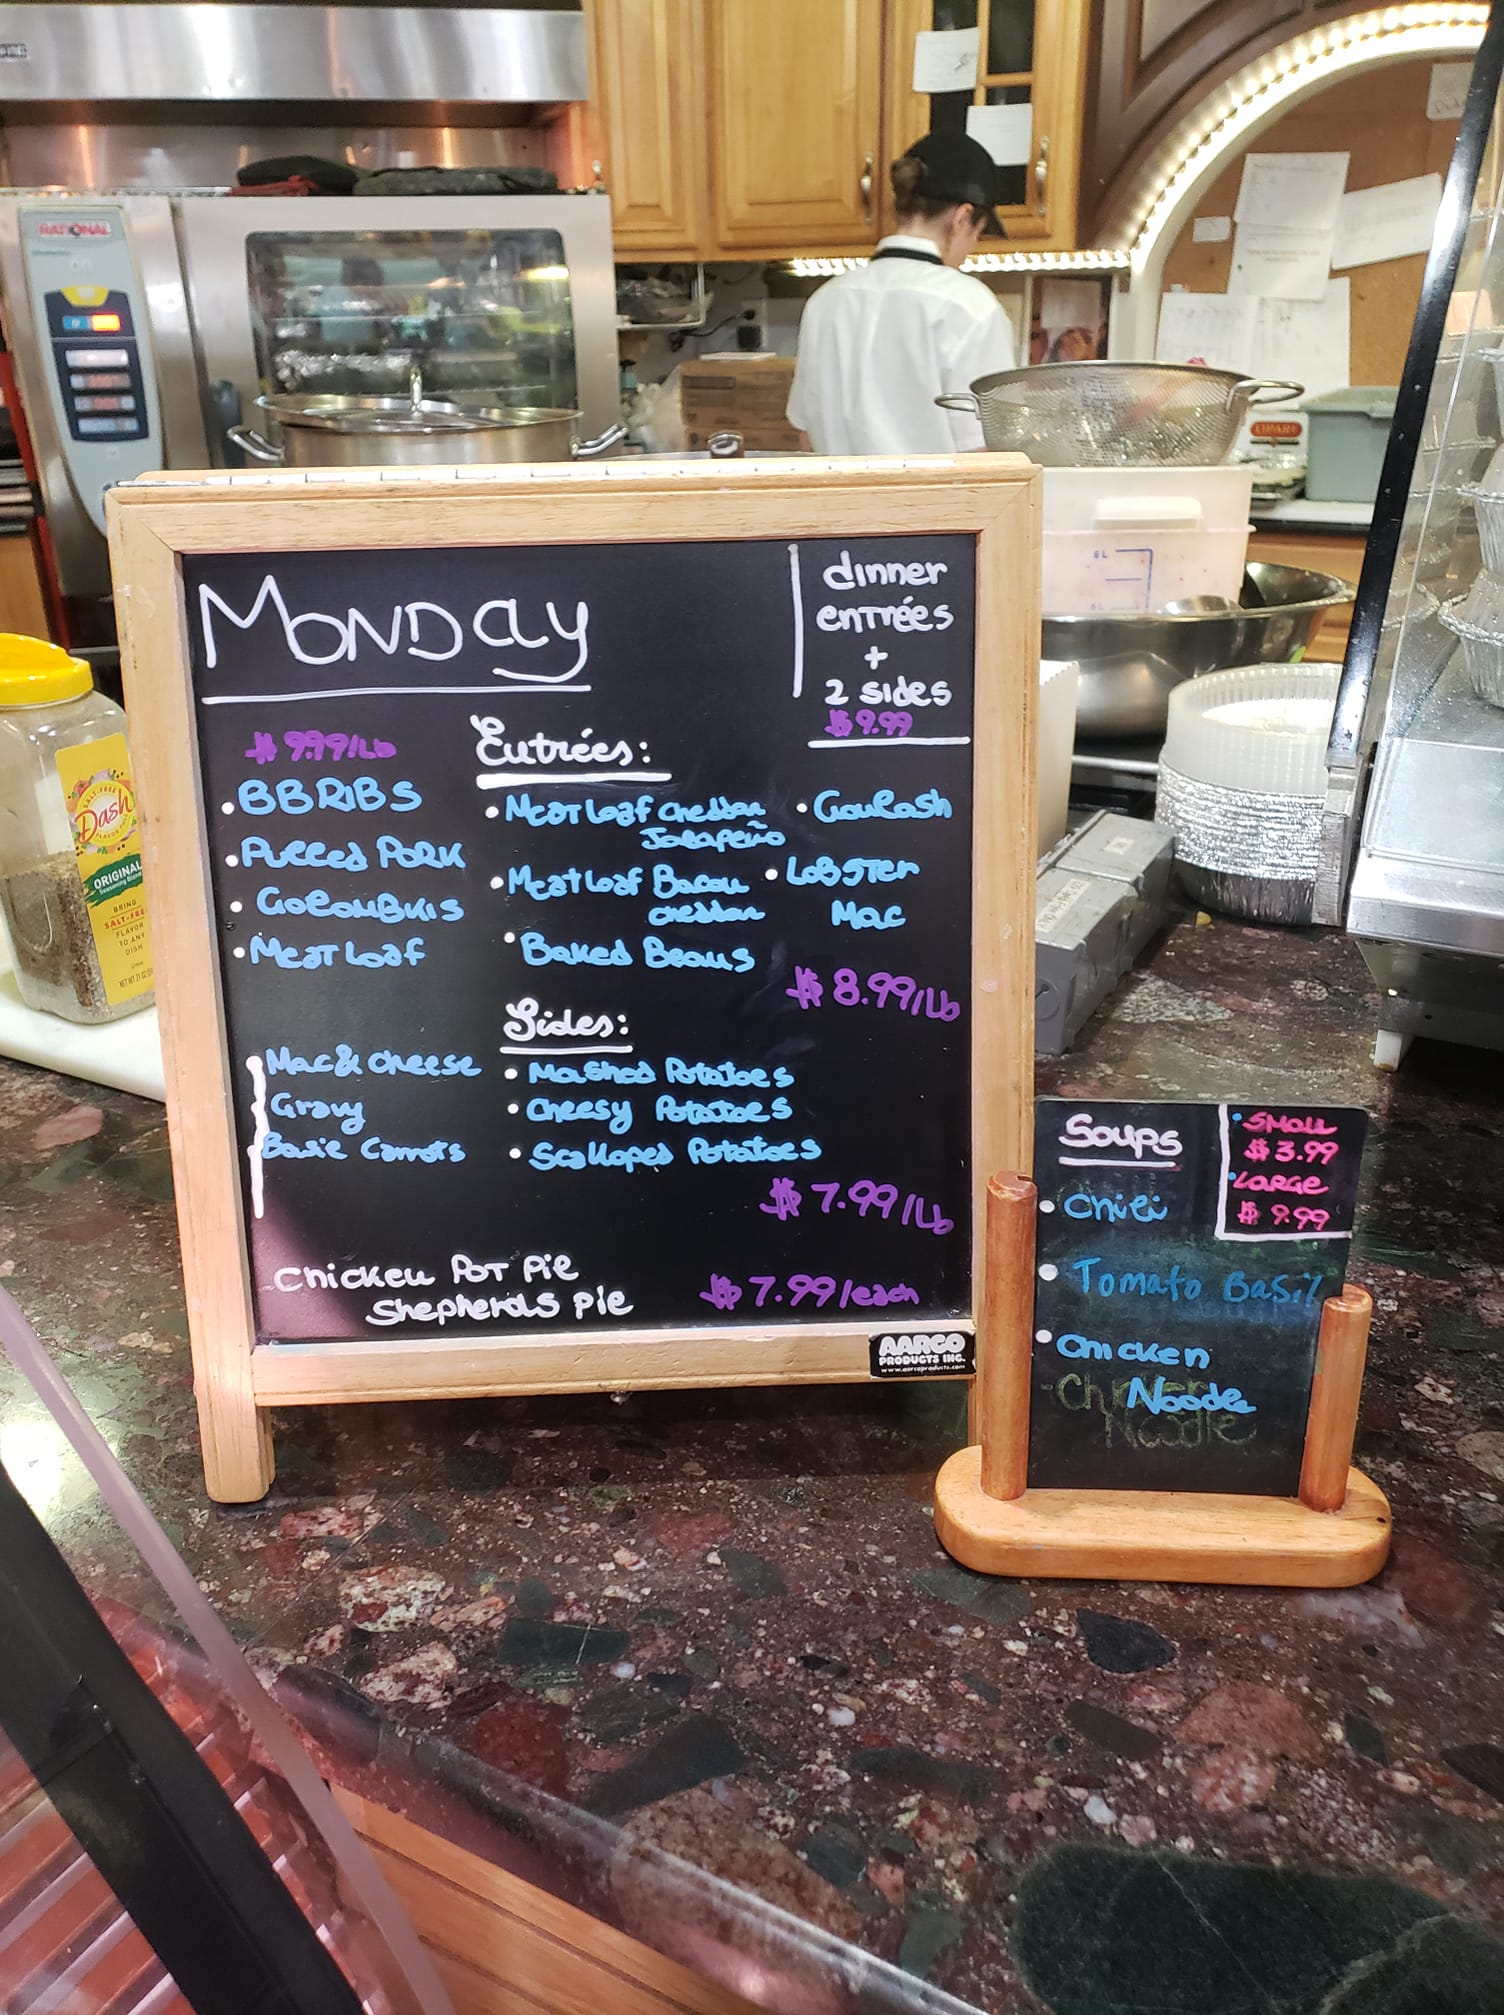 RATIONAL
MONDAY
dinner
entrées
+
2 sides
$9.99
$9.99/Lb
Entrées:
• BBRIBS
• Pulled Pork
• Golombkis
• Meatloaf
• Meatloaf cheddar
Jalapeño
• Meatloaf Bacon
cheddar
• Baked Beans
• Goulash
• Lobster
Mac
$8.99/Lb
Sides:
Mac & cheese
Gravy
Carrots
• Mashed Potatoes
• Cheesy Potatoes
• Scalloped Potatoes
$7.99/Lb
Chicken Pot Pie
Shepherds Pie
$7.99/each
AARCO
PRODUCTS INC.
www.aarcoproducts.com
Soups
• SMALL
$3.99
• LARGE
$9.99
• Chili
• Tomato Basil
• Chicken
Noodle
SALT-FREE
Dash
ORIGINAL
Seasoning Blend
BRING
SALT-FREE
FLAVOR
TO ANY
DISH
6L